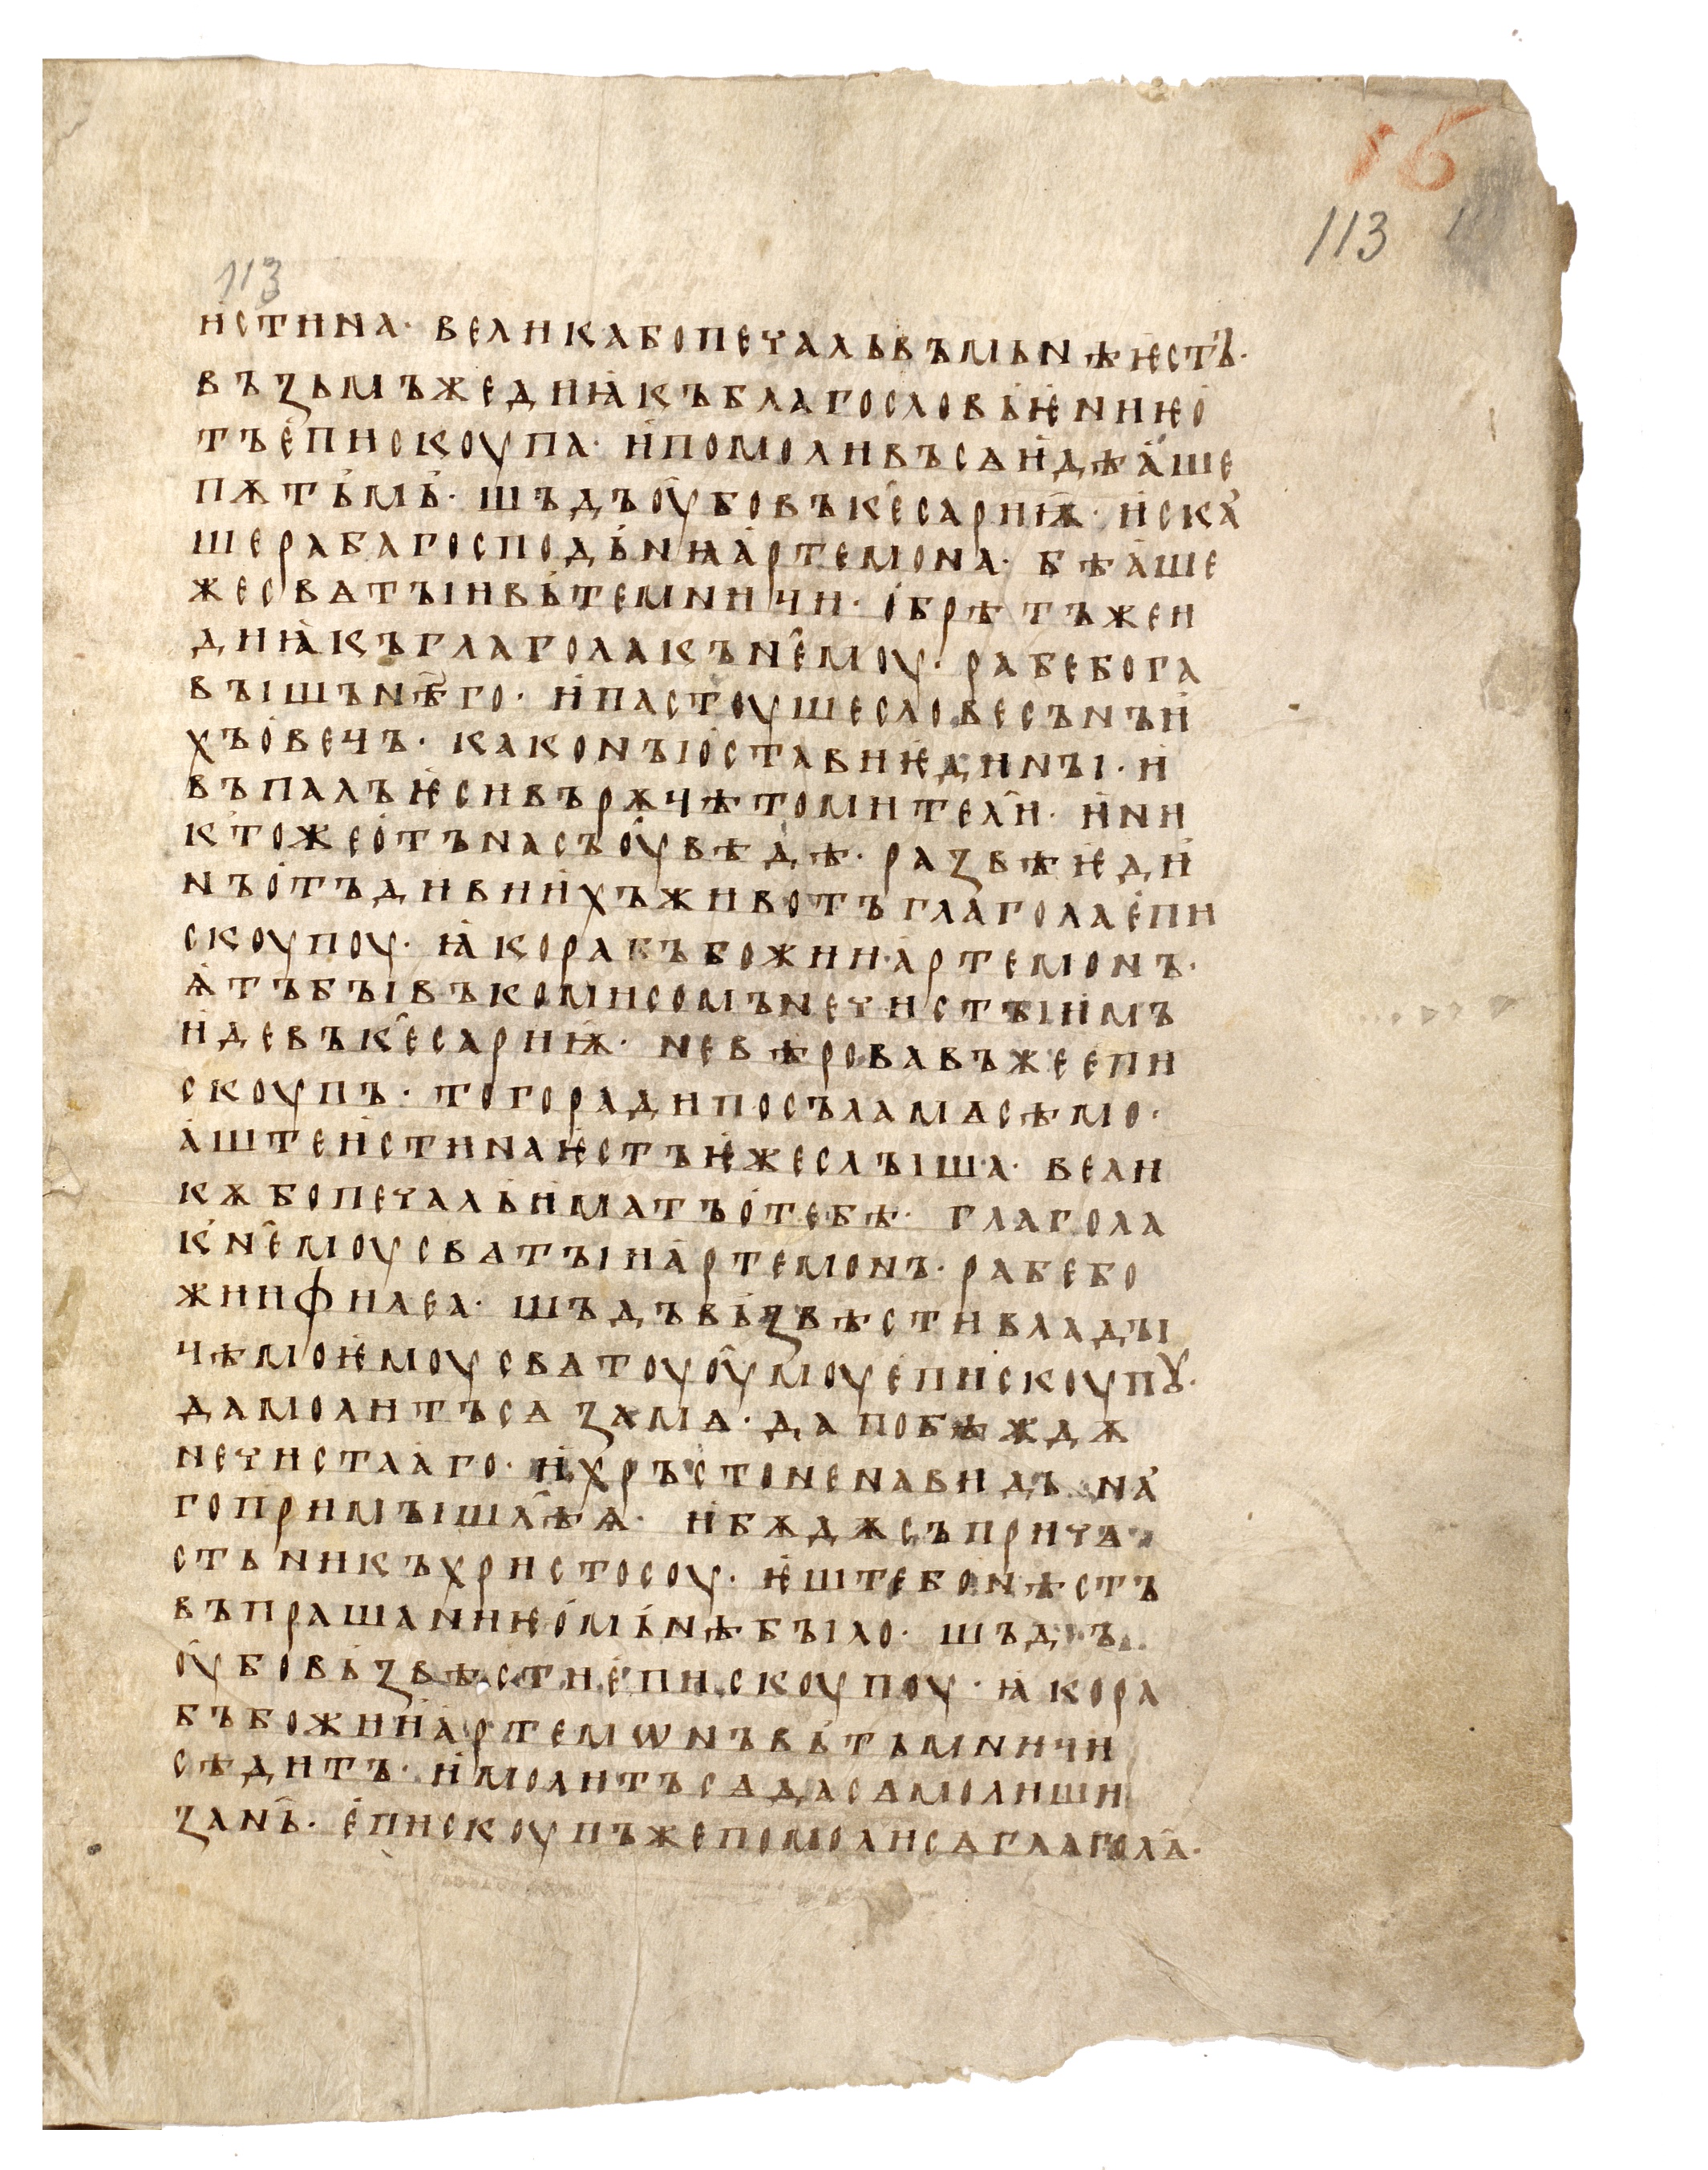 16
113
113
истина· велика бо печаль въ мьнѣ ѥстъ·
възьмъ же диꙗкъ благословѥ́ниѥ о
тъ епискоупа· и помоливъ сѧ идѣа́ше
пѫтьмь· шъдъ оубо въ к҄есариѭ· иска
ше раба господьнꙗ артемона· бѣаше
же свѧтꙑи вь темници· обрѣтъ же и
диꙗкъ глагола къ н҄емоу· рабе бога
вꙑшьн҄ѣго· и пастоуше словесънъи
хъ овецъ· како нꙑ остави ѥдинꙑ· и
въпалъ ѥси въ рѫцѣ томител҄и· и ни
кто же отъ насъ оувѣдѣ· развѣ ѥди
нъ отъ дивиихъ животъ глагола епи
скоупоу· ꙗко рабъ божии артемонъ·
ѩтъ бꙑ въкомисомъ нечистꙑимъ
иде въ к҄есариѭ· не вѣровавъ же епи
скоупъ· того ради посъла мѧ сѣмо·
аште истина ѥстъ ѥже слꙑша· вели
кѫ бо печаль иматъ о тебѣ· глагола
к н҄емоу свѧтꙑи артемонъ· рабе бо
жии филеа· шъдъ вьзвѣсти владꙑ
цѣ моѥмоу свѧтоуоумоу епискоупꙋ·
да молитъ сѧ за мѧ· да побѣждѫ
нечистааго· и хръстоненавидъна
го примꙑшл҄ѣѩ· и бѫдѫ съпричѧ
стьникъ христосоу· ѥште бо нѣстъ
въпрашаниѥ о мьнѣ бꙑло· шъдъ
оубо вьзвѣсти епискоупоу· ꙗко ра
бъ божии артемѡнъ вь тьмници
сѣдитъ· и молитъ сѧ да сѧ молиши
за н҄ь· епискоупъ же помоли сѧ глагол҄ѧ·